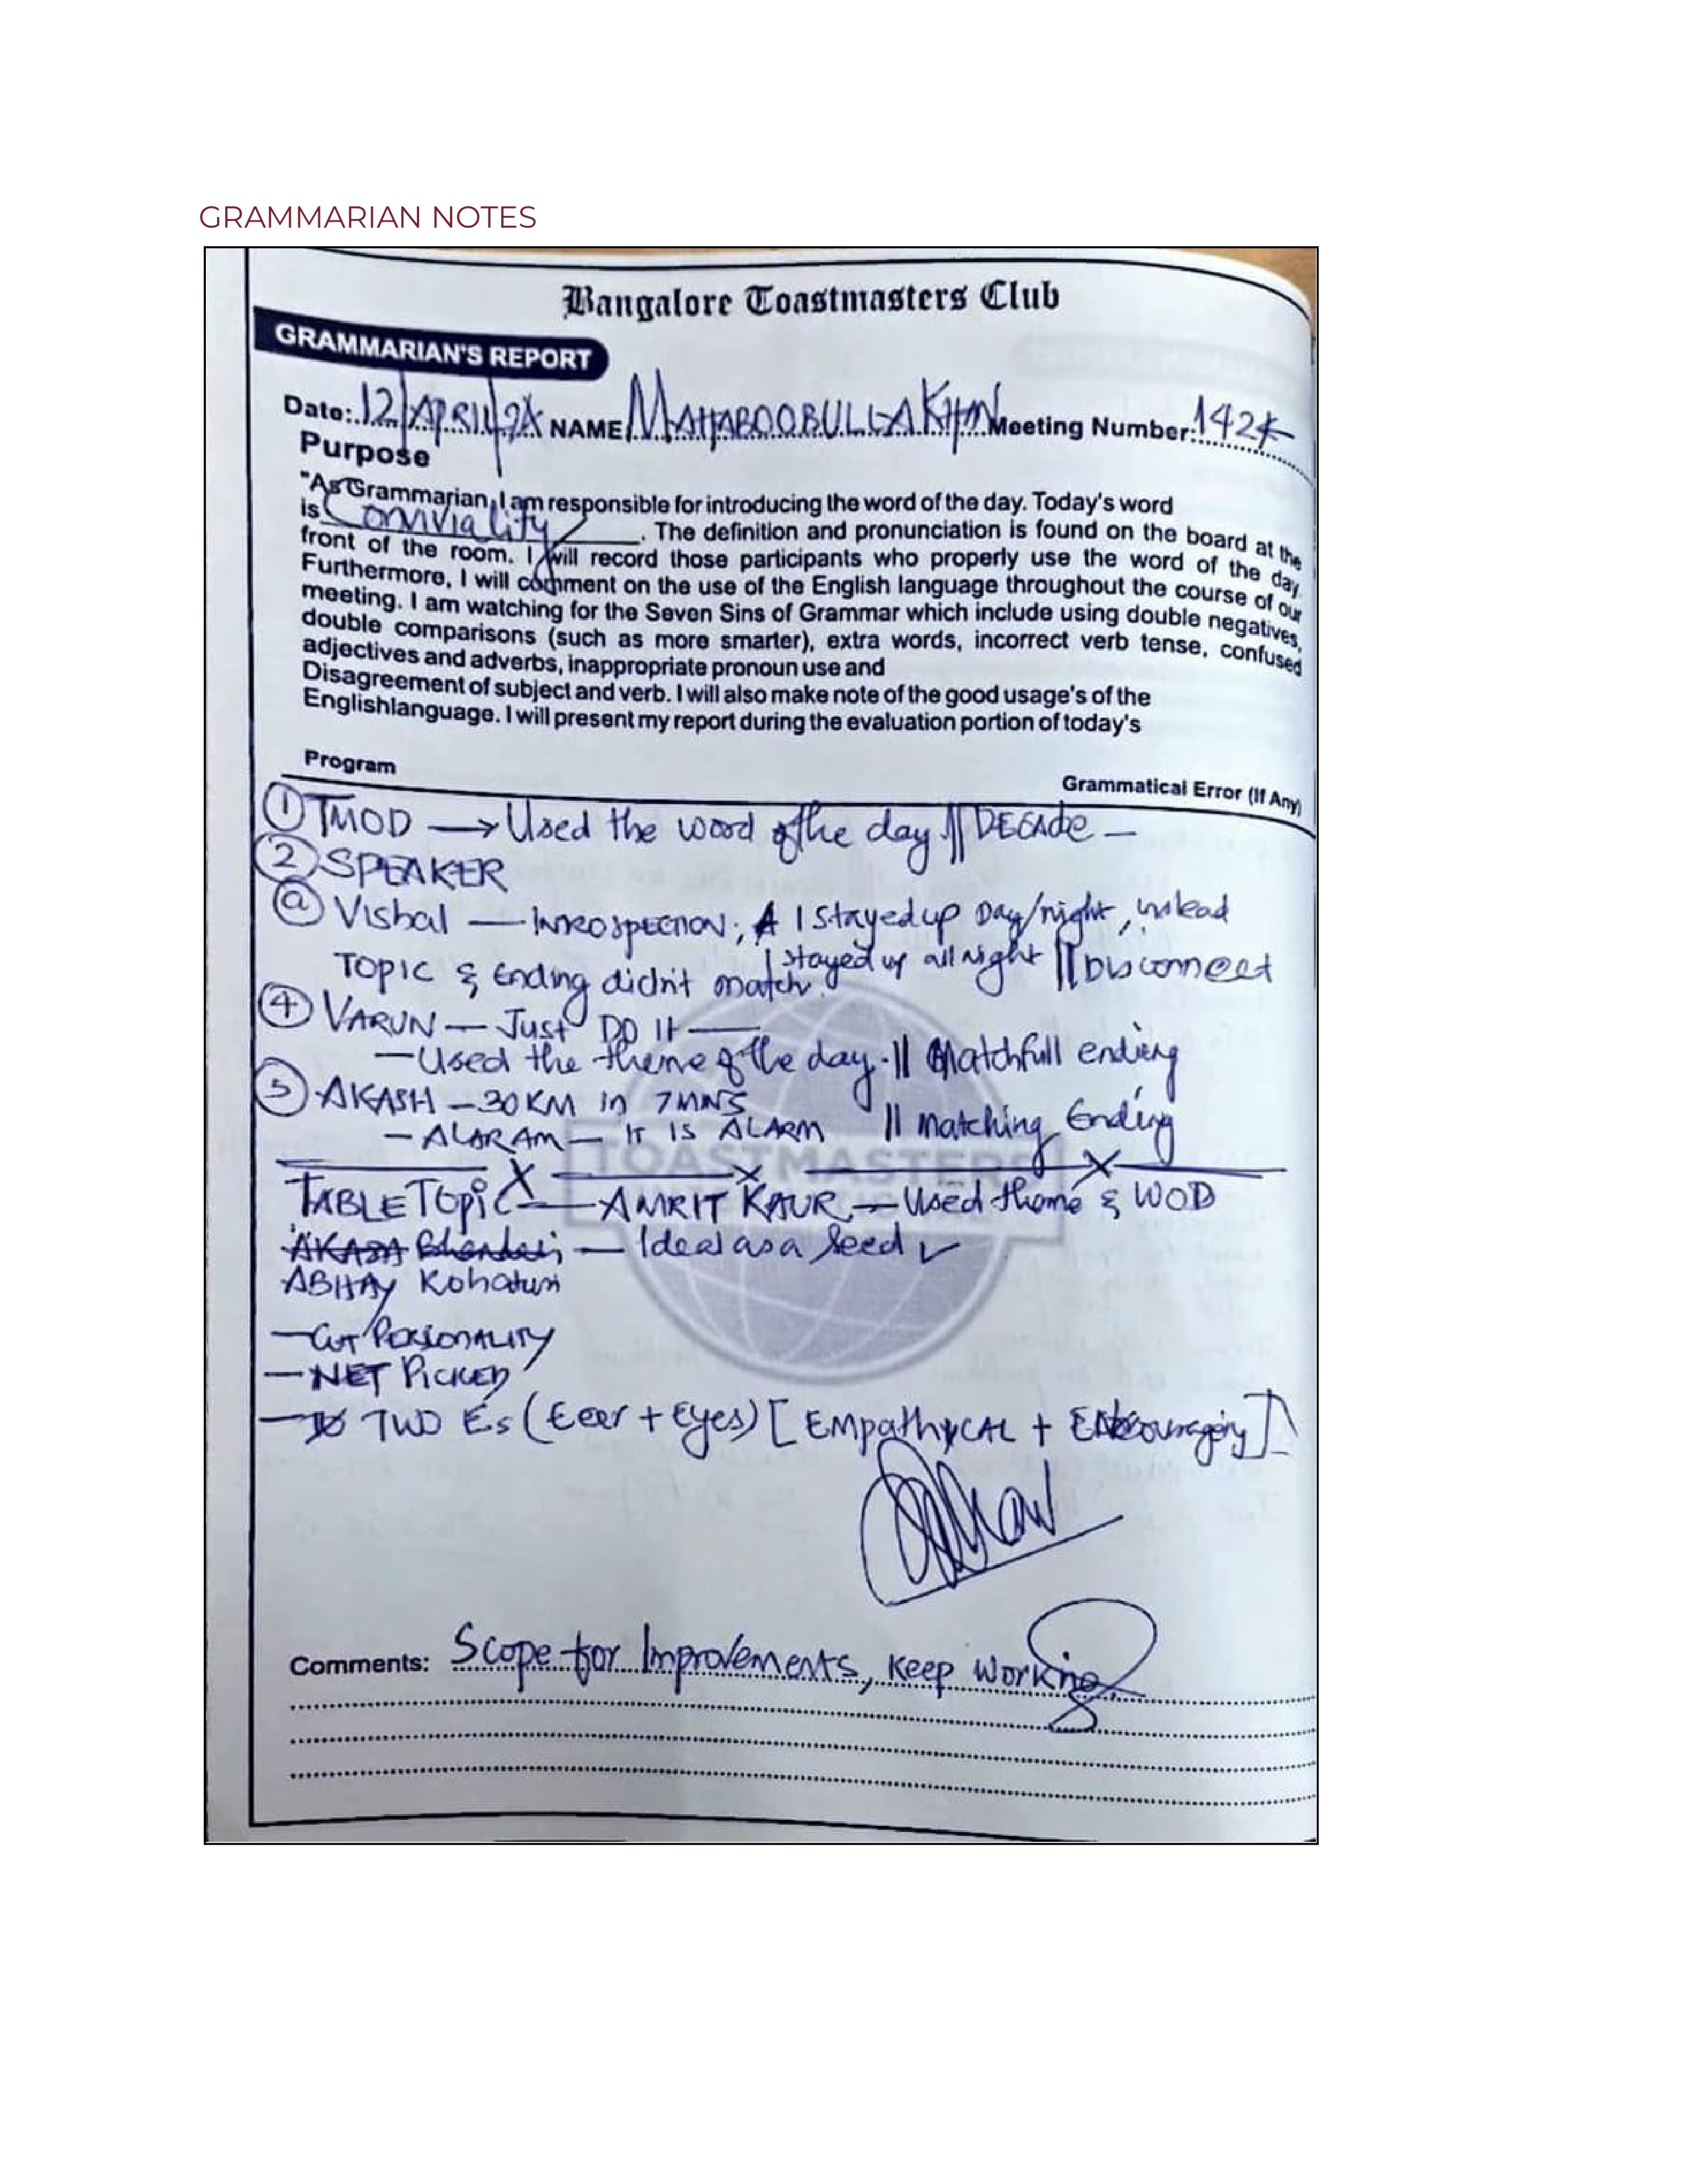 GRAMMARIAN NOTES
Bangalore Toastmasters Club
GRAMMARIAN'S REPORT
Date: 12/APRIL/ NAME MAHABOOBULLA KHAN Meeting Number: 142
Purpose
"As Grammarian, I am responsible for introducing the word of the day. Today's word
is Conviviality. The definition and pronunciation is found on the board at the
front of the room. I will record those participants who properly use the word of the day.
Furthermore, I will comment on the use of the English language throughout the course of our
meeting. I am watching for the Seven Sins of Grammar which include using double negatives,
double comparisons (such as more smarter), extra words, incorrect verb tense, confused
adjectives and adverbs, inappropriate pronoun use and
Disagreement of subject and verb. I will also make note of the good usage's of the
Englishlanguage. I will present my report during the evaluation portion of today's
Program
Grammatical Error (If Any)
① TMOD → Used the word of the day. || DECADE —
② SPEAKER
ⓐ Vishal — INROSPECTION; I stayed up Day/night, instead
I stayed up all night || Disconnect
TOPIC & Ending didn't match.
④ VARUN — Just DO It —
— Used the theme of the day. || Matchfull ending
⑤ AKASH — 30 KM in 7 MNS
— ALARAM — IT IS ALARM || Matching Ending
TABLE TOPIC — AMRIT KAUR — Used theme & WOD
AKASA Bhandari — Ideal as a Seed ✓
ABHAY
— PERSONALITY
— NET PICKED
— TWO Es (Eear + Eyes) [EMPathyCAL + Encouraging]
Comments: Scope for Improvements, Keep Working.
TOASTMASTERS
INTERNATIONAL